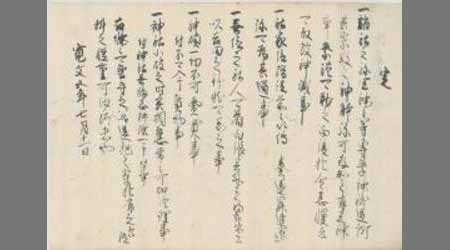 定
一諸社之祢宜神主等専学神祇道所
其崇敬之神体弥可存知之有来神
事祭礼可勤之向後於令怠慢者
可取放神職事
一社家位階従前々以傳 奏遂昇進輩者
弥可為其通事
一無位之社人可着白張其外之装束者
以吉田之許状可着之事
一神領一切不可賣買事
付不可入于質物事
一神社小破之時其相應常々可加修理事
付神社無懈怠掃除可申付事
右條々可堅守之若違犯之輩於有之者随
科之軽重可沙汰者也
寛文五年七月十一日